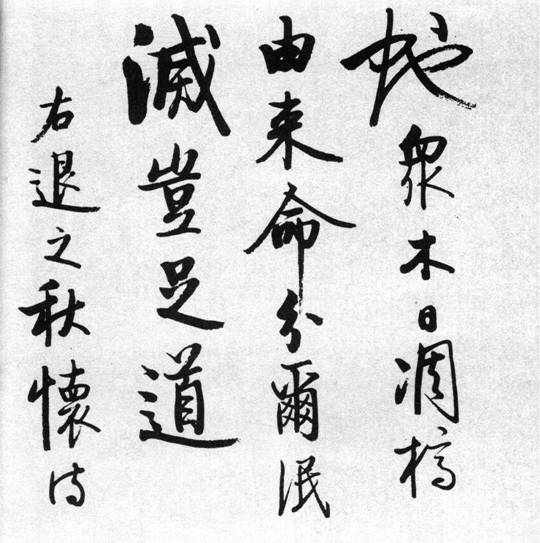 虵衆木日凋槁
由来命分爾泯
滅豈足道
右退之秋懷詩